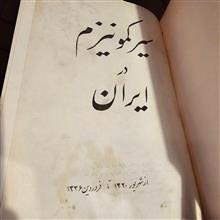 سیر کمونیزم
در
ایران
از شهریور ۱۳۲۰ تا فروردین ۱۳۳۶